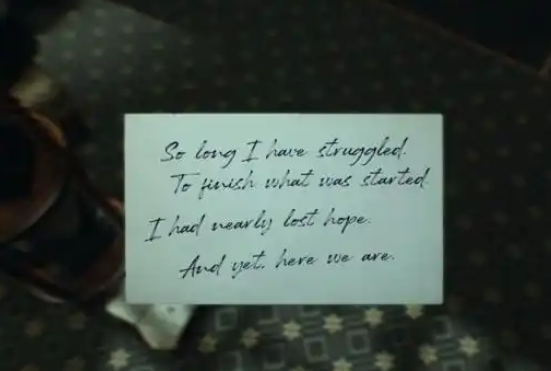 So long I have struggled.
To finish what was started.
I had nearly lost hope.
And yet, here we are.